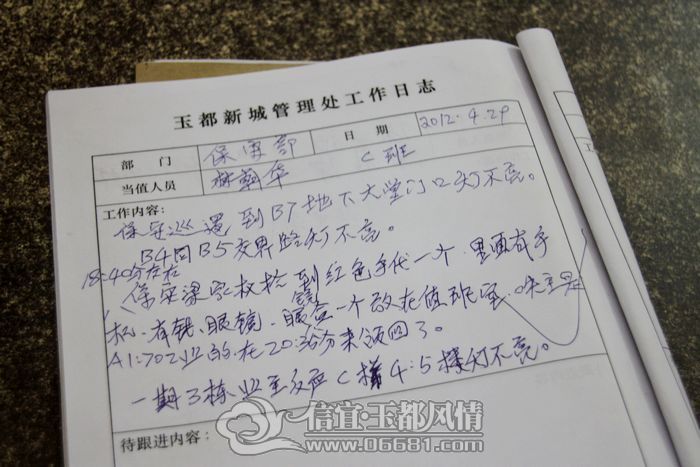 玉都新城管理处工作日志
部门 保安部 日期 2012.4.29
当值人员 林 华 C班
工作内容:
保安巡逻到B7地下大堂门口灯不亮。
B4同B5交界路灯不亮。
18:40分左右
保安梁家权捡到红色手代一个.里面有手
机.有钱.眼镜.眼镜盒一个放在值班室.失主是
A1:702业的.在20: 分来领回了。
一期3栋业主反应C梯4:5楼灯不亮。
待跟进内容:
信宜·玉都风情
www.06681.com